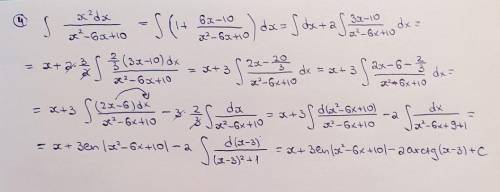 ④ ∫ x²dx/(x²-6x+10) = ∫(1 + (6x-10)/(x²-6x+10))dx = ∫dx + 2∫ (3x-10)/(x²-6x+10) dx =
= x + 2·3/2 ∫ (2/3(3x-10)dx)/(x²-6x+10) = x + 3∫ (2x - 20/3)/(x²-6x+10) dx = x + 3∫ (2x-6-2/3)/(x²-6x+10) dx =
= x + 3∫ ((2x-6)dx)/(x²-6x+10) - 3·2/3 ∫ dx/(x²-6x+10) = x + 3∫ d(x²-6x+10)/(x²-6x+10) - 2∫ dx/(x²-6x+9+1) =
= x + 3ln|x²-6x+10| - 2 ∫ d(x-3)/((x-3)²+1) = x + 3ln|x²-6x+10| - 2arctg(x-3) + C